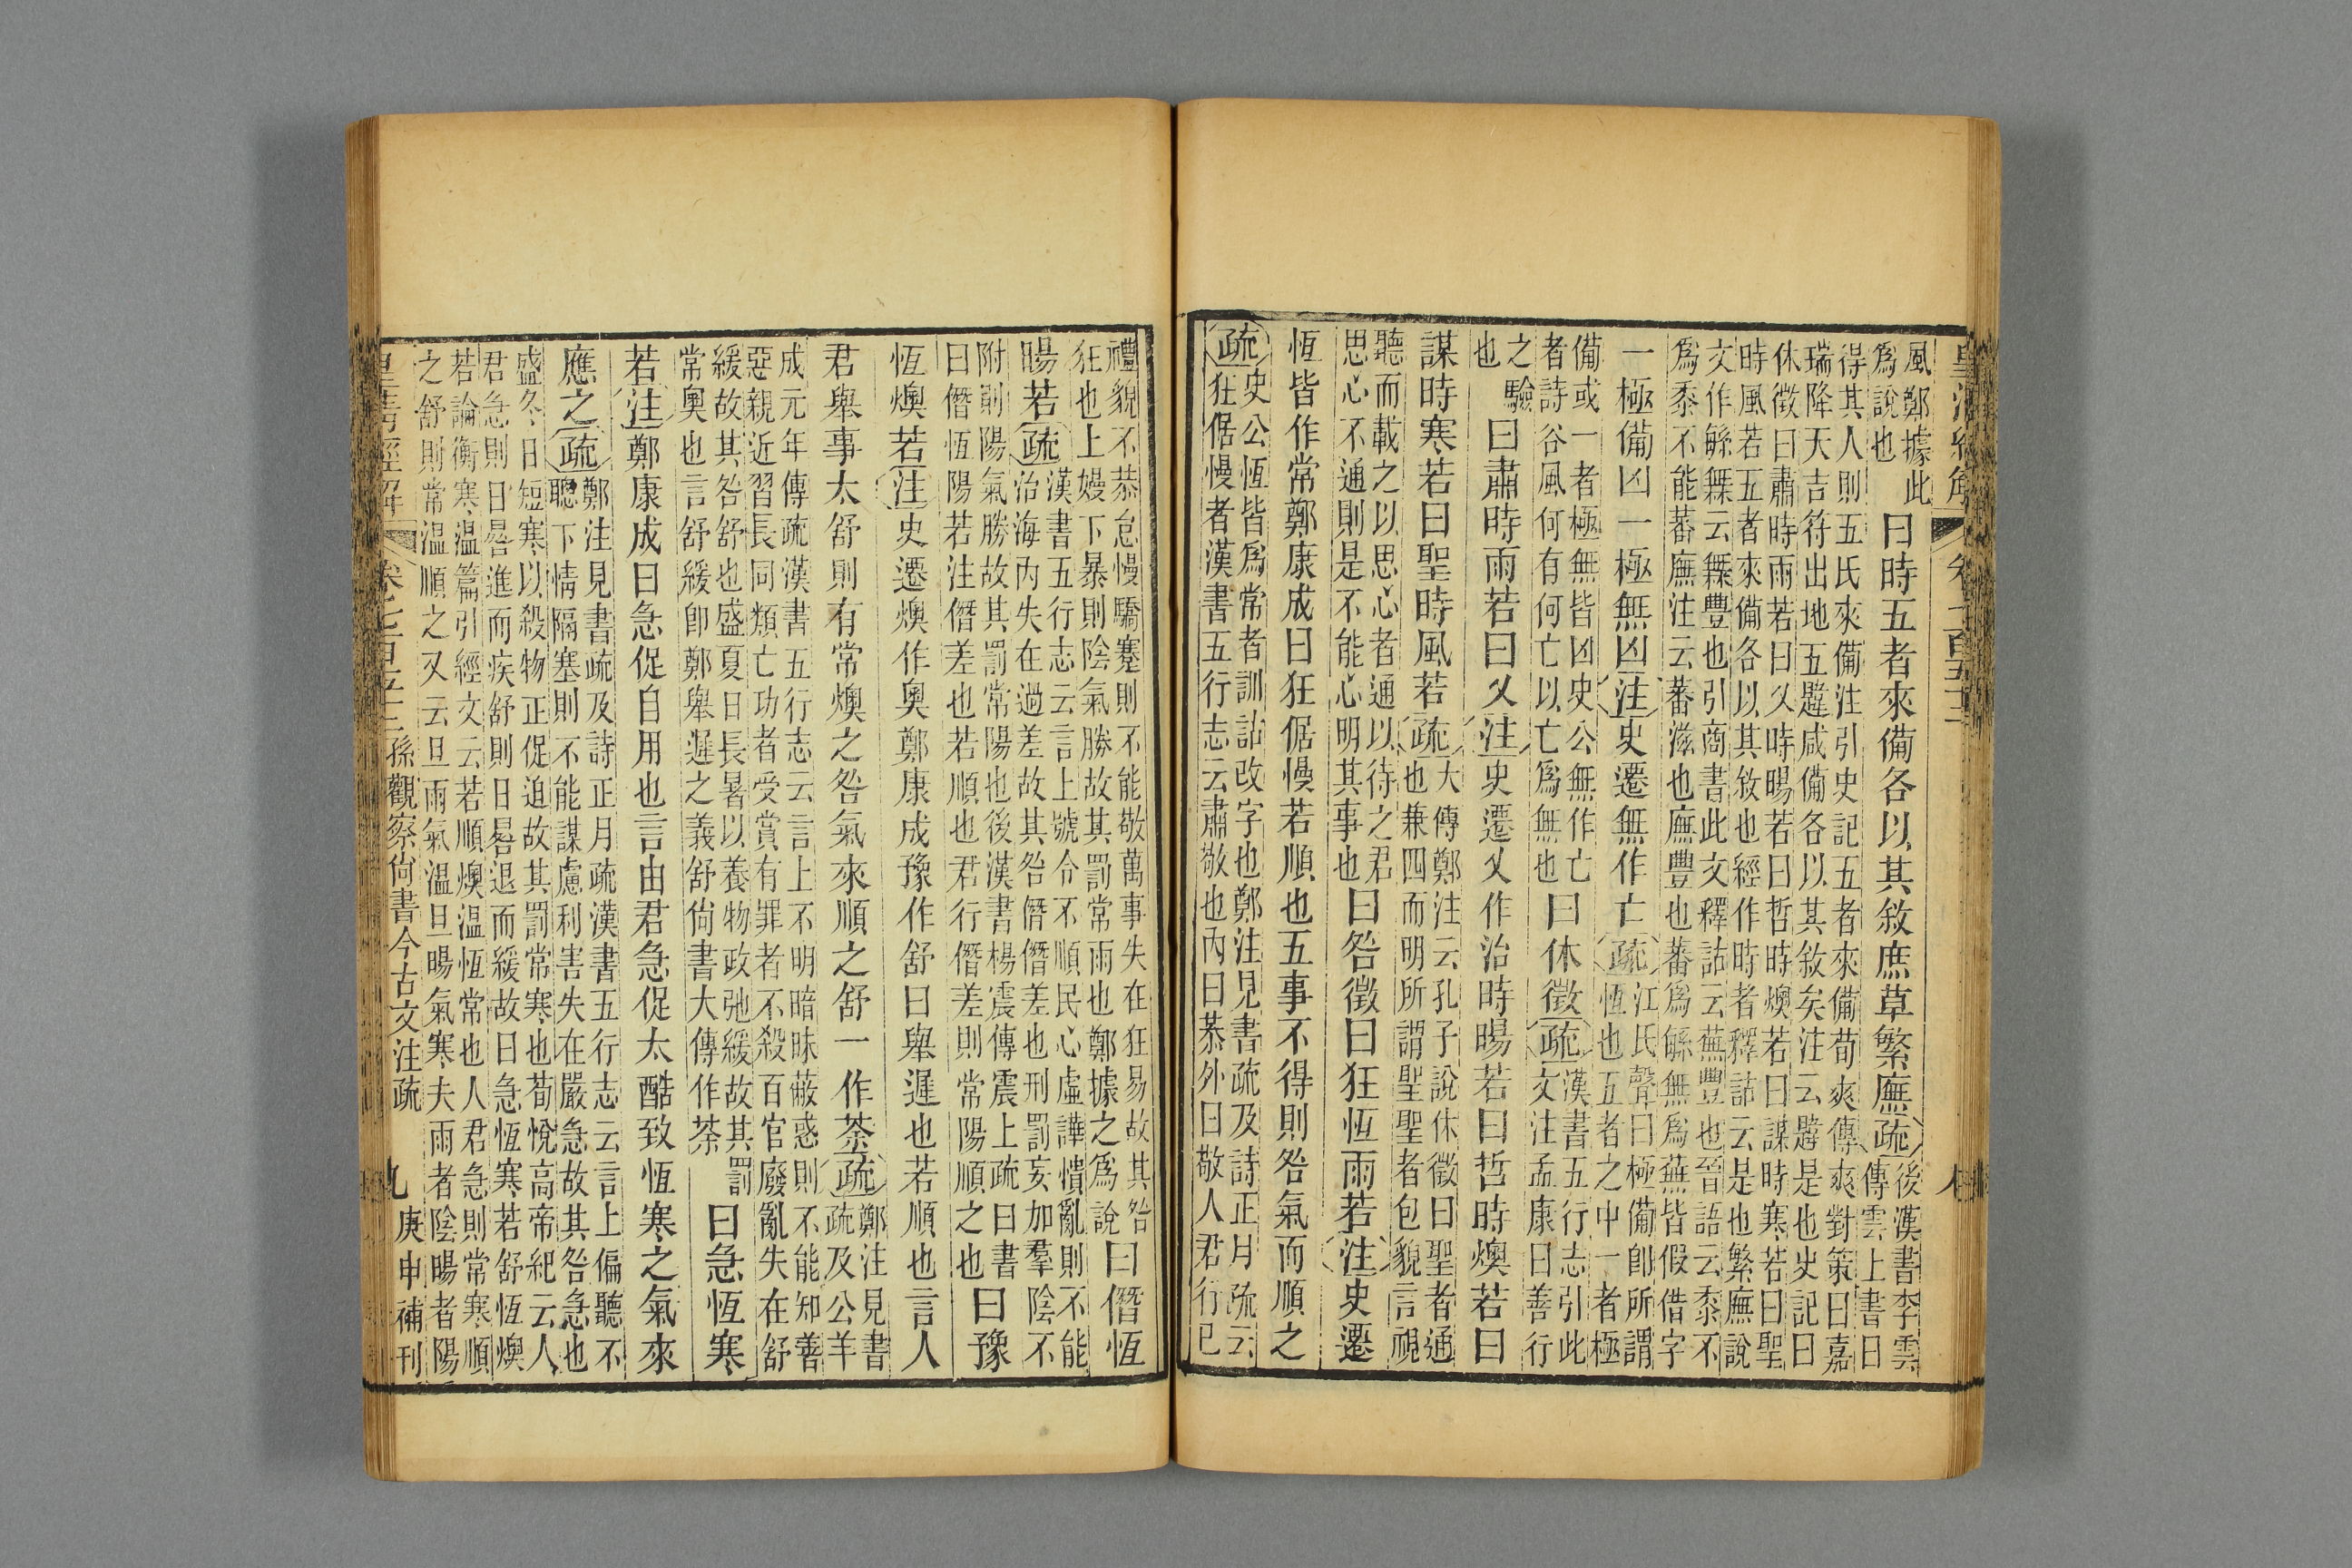 皇清經解 卷七百五十二 八
風鄭據此
爲說也
曰時五者來備各以其敘庶草繁廡疏
後漢書李雲
傳雲上書曰
得其人則五氏來備注引史記五者來備荀爽傳爽對策曰嘉
瑞降天吉符出地五韙咸備各以其敘矣注云韙是也史記曰
休徵曰肅時雨若曰乂時暘若曰哲時燠若曰謀時寒若曰聖
時風若五者來備各以其敘也經作時者釋詁云是也繁廡說
文作緐橆云橆豐也引商書此文釋詁云蕪豐也晉語云黍不
爲黍不能蕃廡注云蕃滋也廡豐也蕃爲緐無爲蕪皆假借字
一極備凶一極無凶注史遷無作亡疏
江氏聲曰極備卽所謂
恆也五者之中一者極
備或一者極無皆凶史公無作亡
者詩谷風何有何亡以亡爲無也
曰休徵疏
漢書五行志引此
文注孟康曰善行
之驗
也
曰肅時雨若曰乂注史遷乂作治時暘若曰哲時燠若曰
謀時寒若曰聖時風若疏
大傳鄭注云孔子說休徵曰聖者通
也兼四而明所謂聖聖者包貌言視
聽而載之以思心者通以待之君
思心不通則是不能心明其事也
曰咎徵曰狂恆雨若注史遷
恆皆作常鄭康成曰狂倨慢若順也五事不得則咎氣而順之
疏
史公恆皆爲常者訓詁改字也鄭注見書疏及詩正月疏云
狂倨慢者漢書五行志云肅敬也內曰恭外曰敬人君行已
禮貌不恭怠慢驕蹇則不能敬萬事失在狂易故其咎
狂也上嫚下暴則陰氣勝故其罰常雨也鄭據之爲說
曰僭恆
暘若疏
漢書五行志云言上號令不順民心虛譁憒亂則不能
治海內失在過差故其咎僭僭差也刑罰妄加羣陰不
附則陽氣勝故其罰常陽也後漢書楊震傳震上疏曰書
曰僭恆陽若注僭差也若順也君行僭差則常陽順之也
曰豫
恆燠若注史遷燠作奧鄭康成豫作舒曰舉遲也若順也言人
君舉事太舒則有常燠之咎氣來順之舒一作荼疏
鄭注見書
疏及公羊
成元年傳疏漢書五行志云言上不明暗昧蔽惑則不能知善
惡親近習長同類亡功者受賞有罪者不殺百官廢亂失在舒
緩故其咎舒也盛夏日長暑以養物政弛緩故其罰
常奧也言舒緩卽鄭舉遲之義舒尙書大傳作荼
曰急恆寒
若注鄭康成曰急促自用也言由君急促太酷致恆寒之氣來
應之疏
鄭注見書疏及詩正月疏漢書五行志云言上偏聽不
聰下情隔塞則不能謀慮利害失在嚴急故其咎急也
盛冬日短寒以殺物正促迫故其罰常寒也荀悅高帝紀云人
君急則日晷進而疾舒則日晷退而緩故曰急恆寒若舒恆燠
若論衡寒温篇引經文云若順燠温恆常也人君急則常寒順
之舒則常温順之又云旦雨氣温旦暘氣寒夫雨者陰暘者陽
皇清經解 卷七百五十二 孫觀察尙書今古文注疏 九 庚申補刊